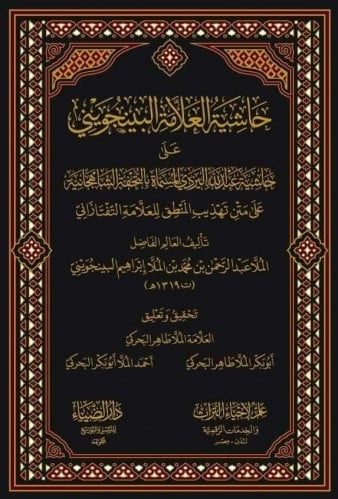 حاشية العلامة البينجويني
على
حاشية عبد الله اليزدي المسماة بالتحفة الشاهجانية
على متن تهذيب المنطق للعلامة التفتازاني
تأليف العالم الفاضل
الملا عبد الرحمن بن محمد بن الملا إبراهيم البينجويني
(ت ١٣١٩هـ)
تحقيق وتعليق
العلامة الملا طاهر البحركي
أبو بكر الملا طاهر البحركي أحمد الملا أبو بكر البحركي
علم لإحياء التراث دار الضياء
والخدمات الرقمية للنشر والتوزيع
لندن - مصر الكويت